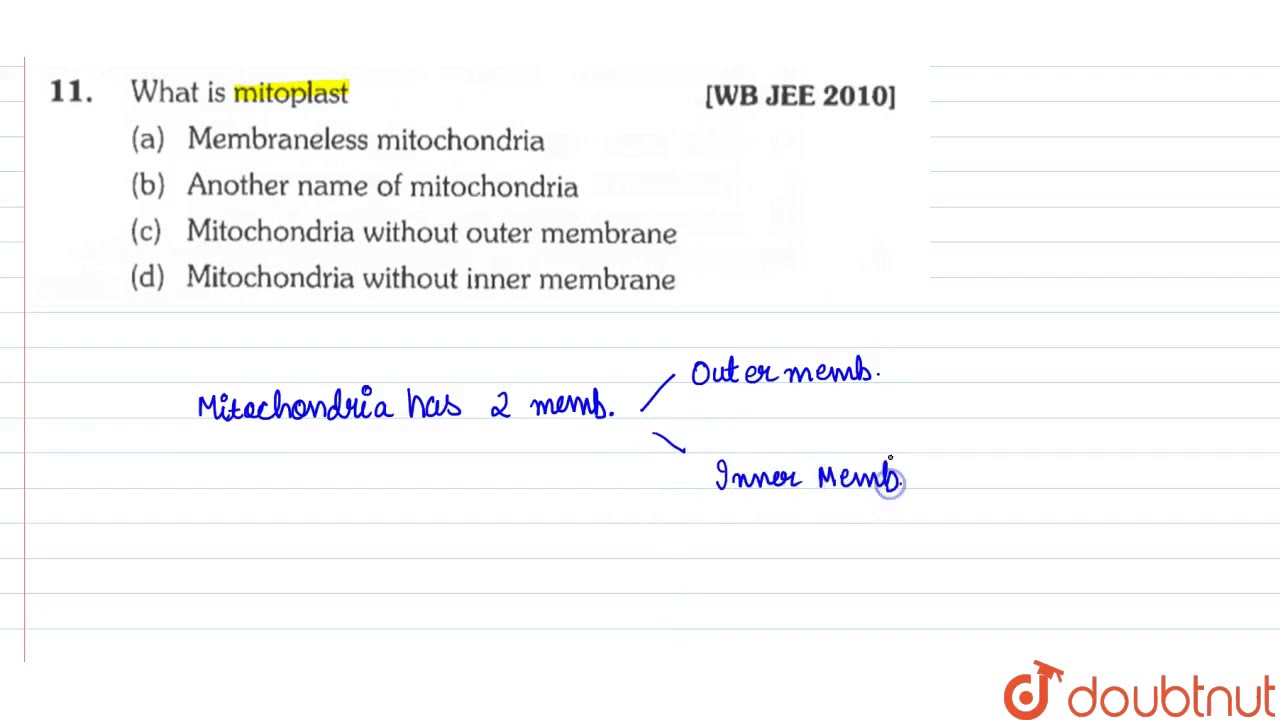 11. What is mitoplast [WB JEE 2010]
(a) Membraneless mitochondria
(b) Another name of mitochondria
(c) Mitochondria without outer membrane
(d) Mitochondria without inner membrane
Outer memb.
Mitochondria has 2 memb.
Inner Memb.
doubtnut